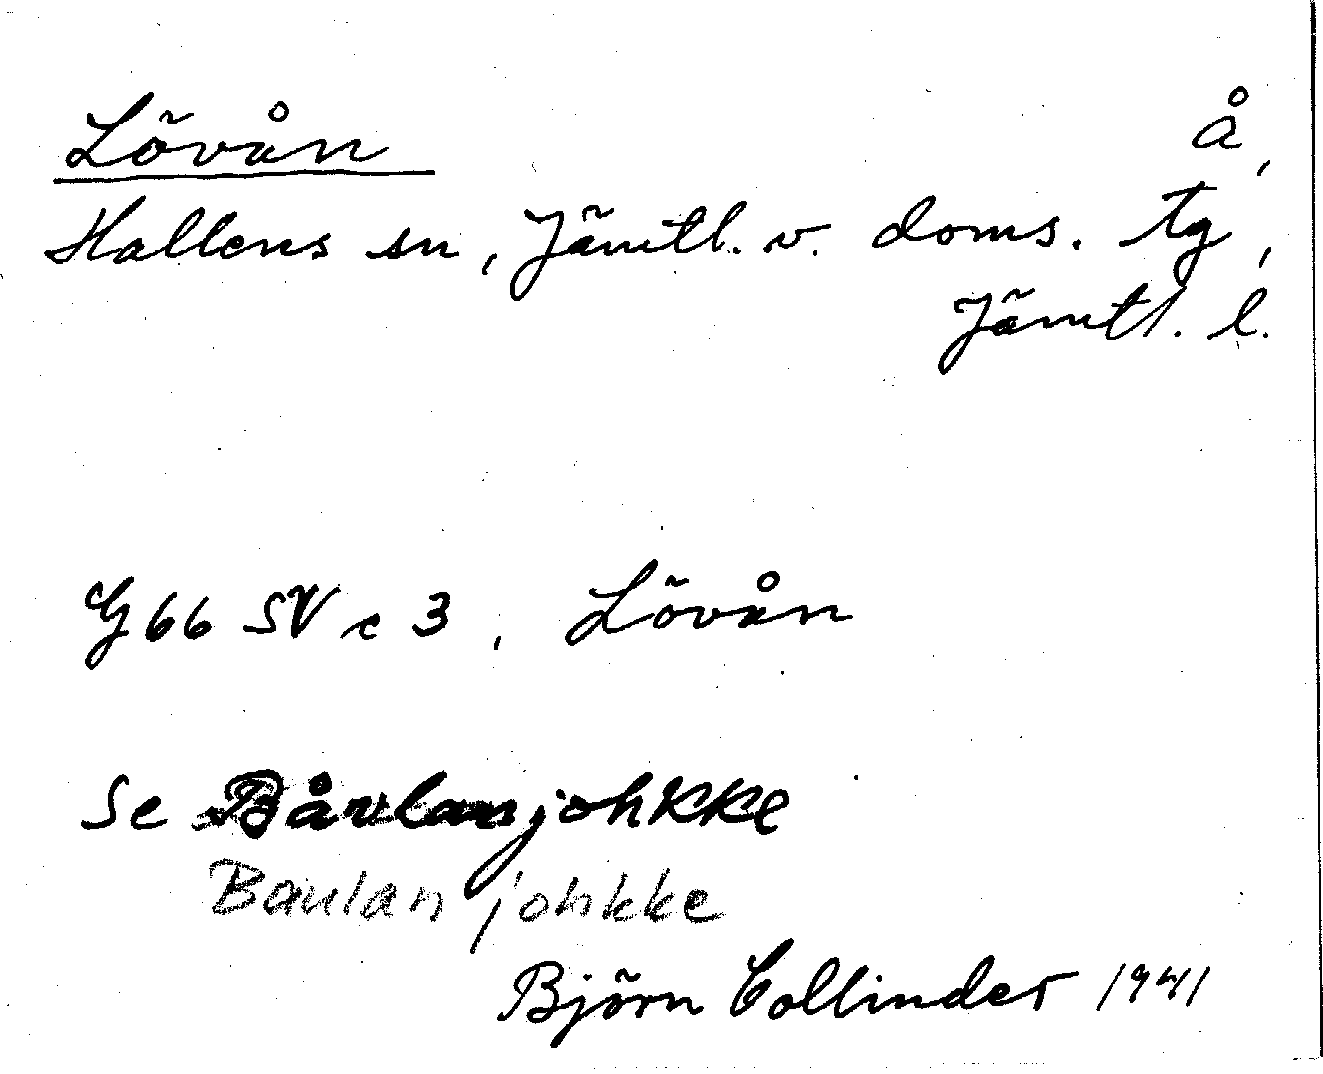 Lövån å,
Hallens sn, Jämtl. v. doms. tg,
Jämtl. l.
G 66 SV c 3, Lövån
Se Båvlanjohkke
Baulanjohkke
Björn Collinder 1941